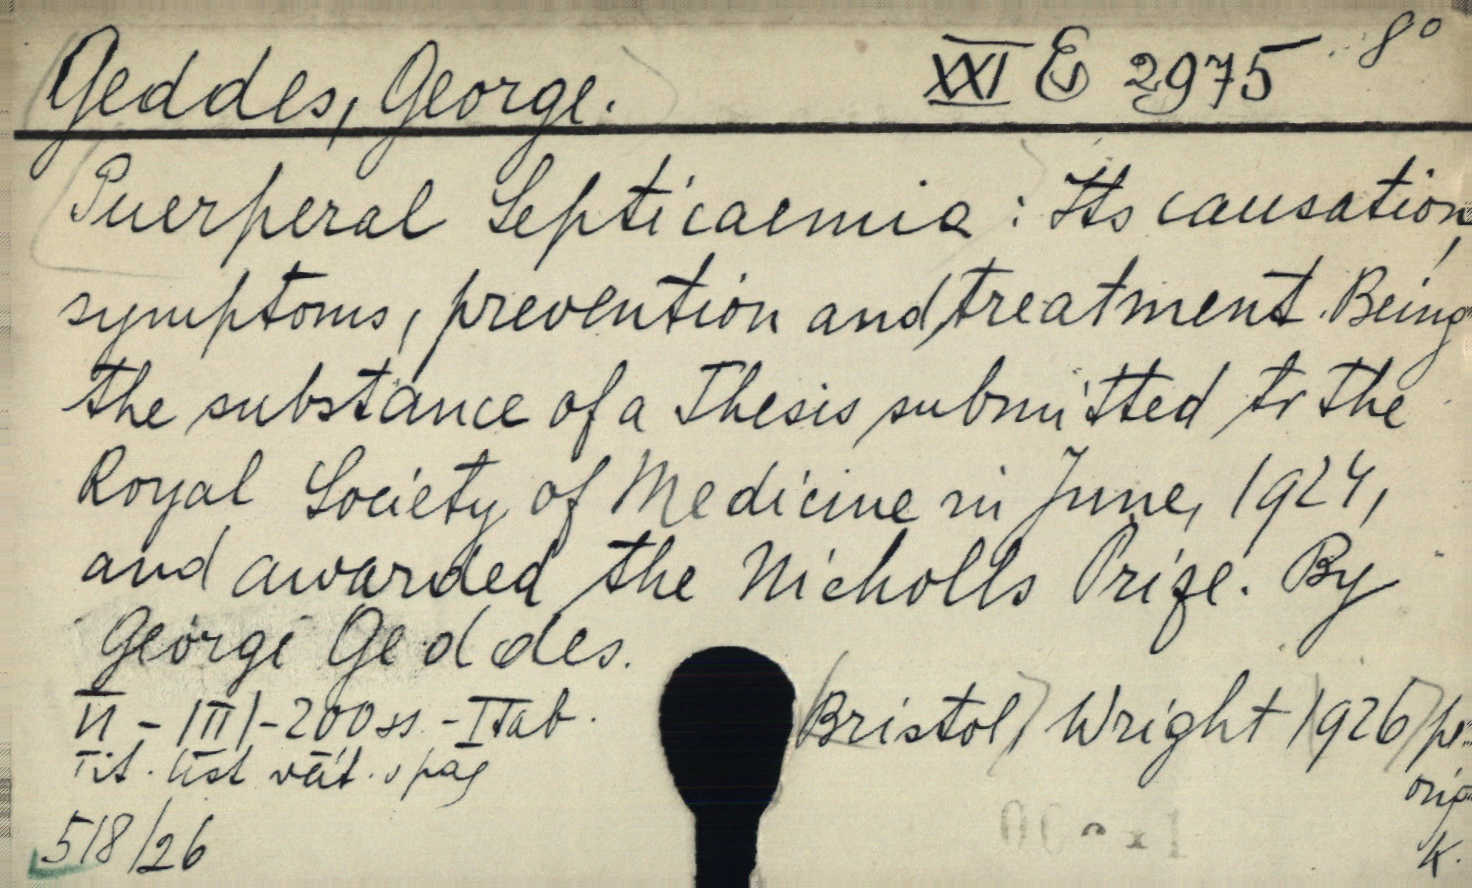 Geddes, George. XXI E 2975 8°
Puerperal Septicaemia : Its causation,
symptoms, prevention and treatment. Being
the substance of a Thesis submitted to the
Royal Society of Medicine in June, 1924,
and awarded the Nicholls Prize. By
George Geddes.
VI - |III| - 200 ss. - I Tab.
Bristol, Wright 1926
Tit. list
orig
K.
518/26